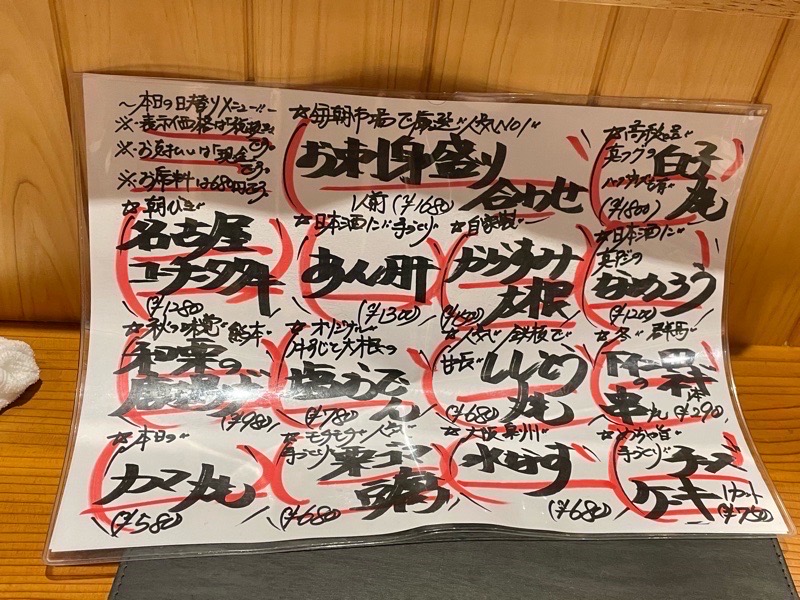 ～本日の日替りメニュー～
※表示価格は「税込」です。
※お支払いは「現金」です。
※お席料は680円です。
☆毎朝市場で厳選 人気NO1
お刺身盛り合わせ
1人前(¥1680)
☆高級
真フグの
白子
(¥1800)
☆朝びき
名古屋
コーチン
(¥1280)
☆日本酒に 手づくり
あん肝
(¥1300)
☆自家製
からすみ
大根
☆日本酒に
真アジの
なめろう
(¥1200)
☆秋の味覚 熊本
和栗の
(¥980)
☆オリジナル
牛すじと大根の
塩おでん
(¥780)
☆人気 鉄板で
甘長
ししとう
(¥680)
☆冬 群馬
下仁田ネギ
の串
1本
(¥290)
☆本日の
カマ
(¥580)
☆モチモチ 人気
手づくり
栗
豆腐
(¥680)
☆大阪 泉州
水なす
(¥680)
☆めちゃ旨
手づくり
チーズ
ケーキ
1カット
(¥780)